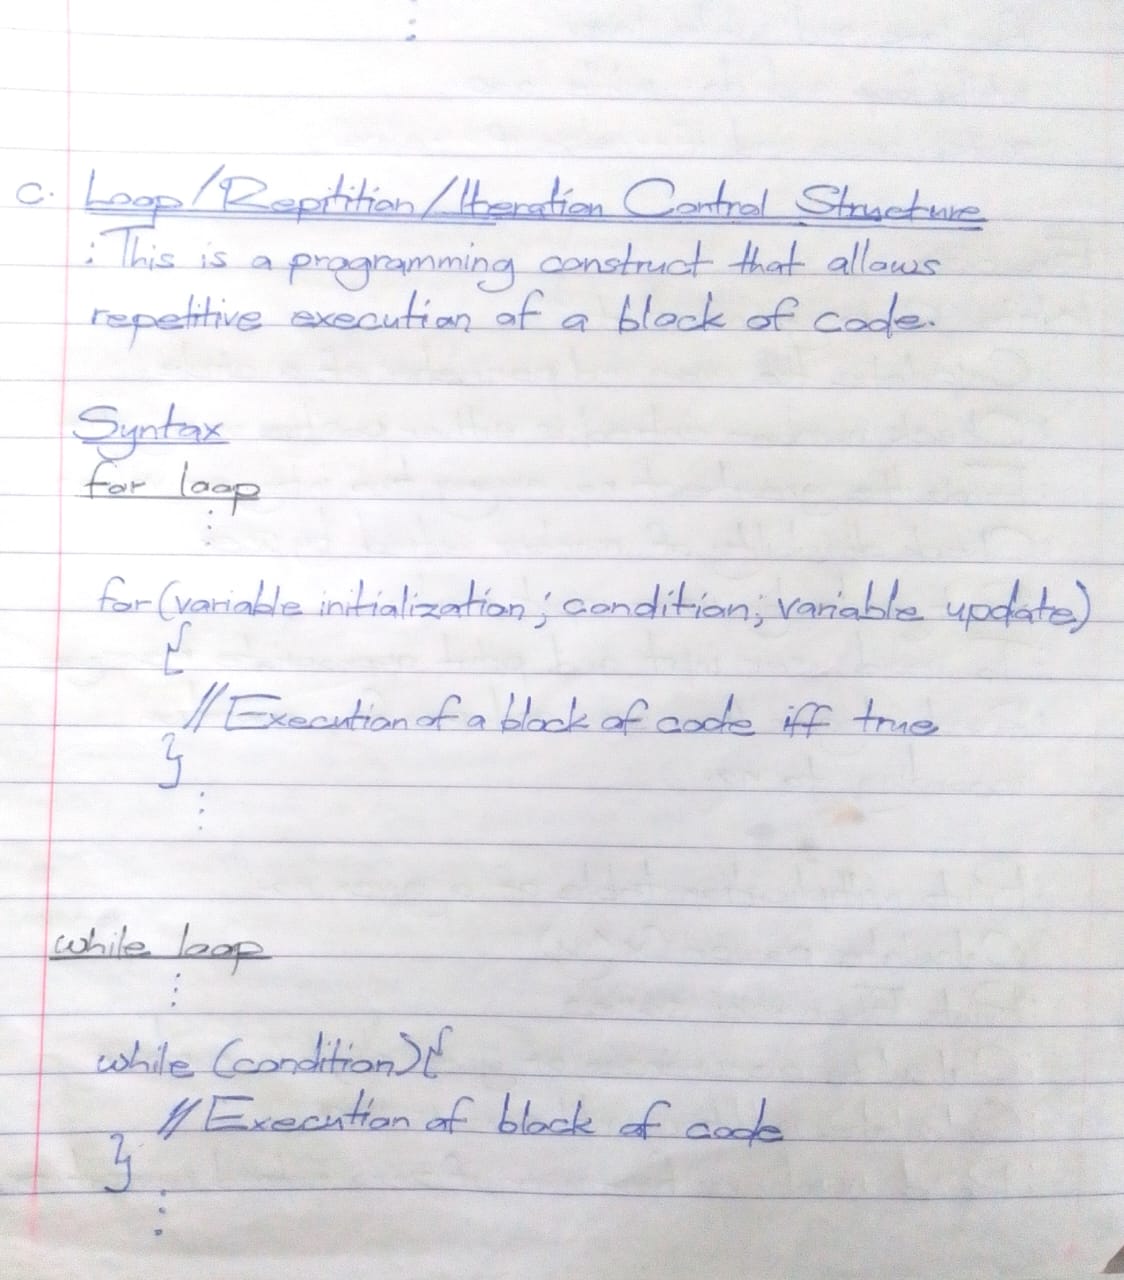 ⋮
c. Loop/Repitition/Iteration Control Structure
: This is a programming construct that allows
repetitive execution of a block of code.
Syntax
for loop
⋮
for (variable initialization; condition; variable update)
{
// Execution of a block of code iff true
}
⋮
while loop
⋮
while (condition){
// Execution of block of code
}
⋮